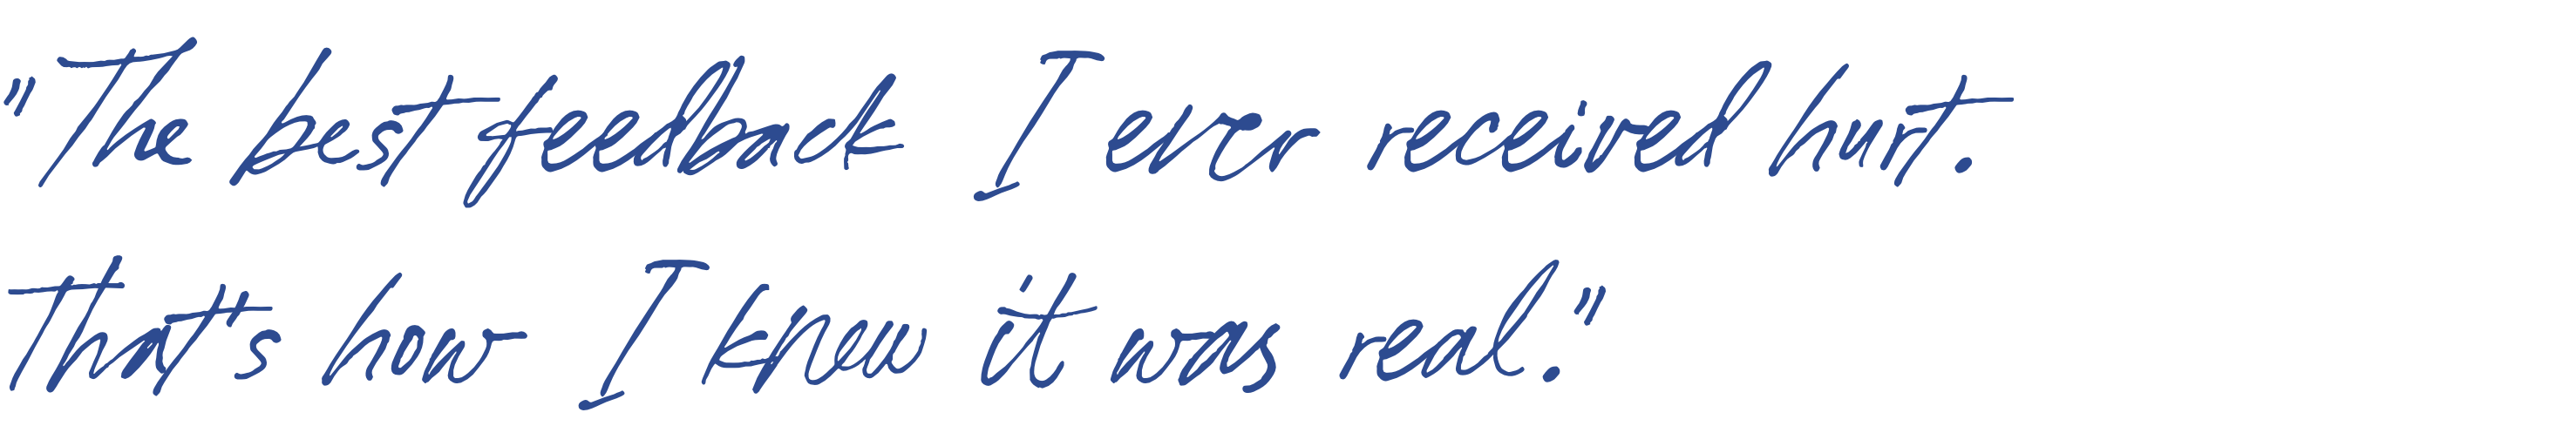 "The best feedback I ever received hurt.
That's how I knew it was real."